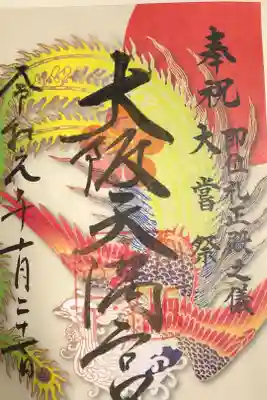 奉祝 即位礼正殿之儀
大嘗祭
大阪天満宮
令和元年十月二十二日